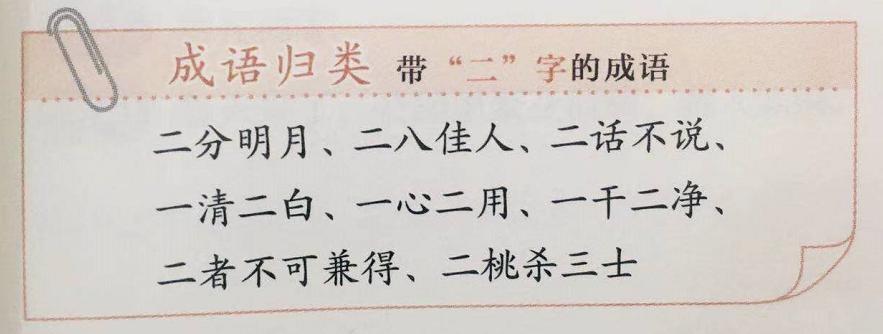 成语归类 带“二”字的成语
二分明月、二八佳人、二话不说、
一清二白、一心二用、一干二净、
二者不可兼得、二桃杀三士